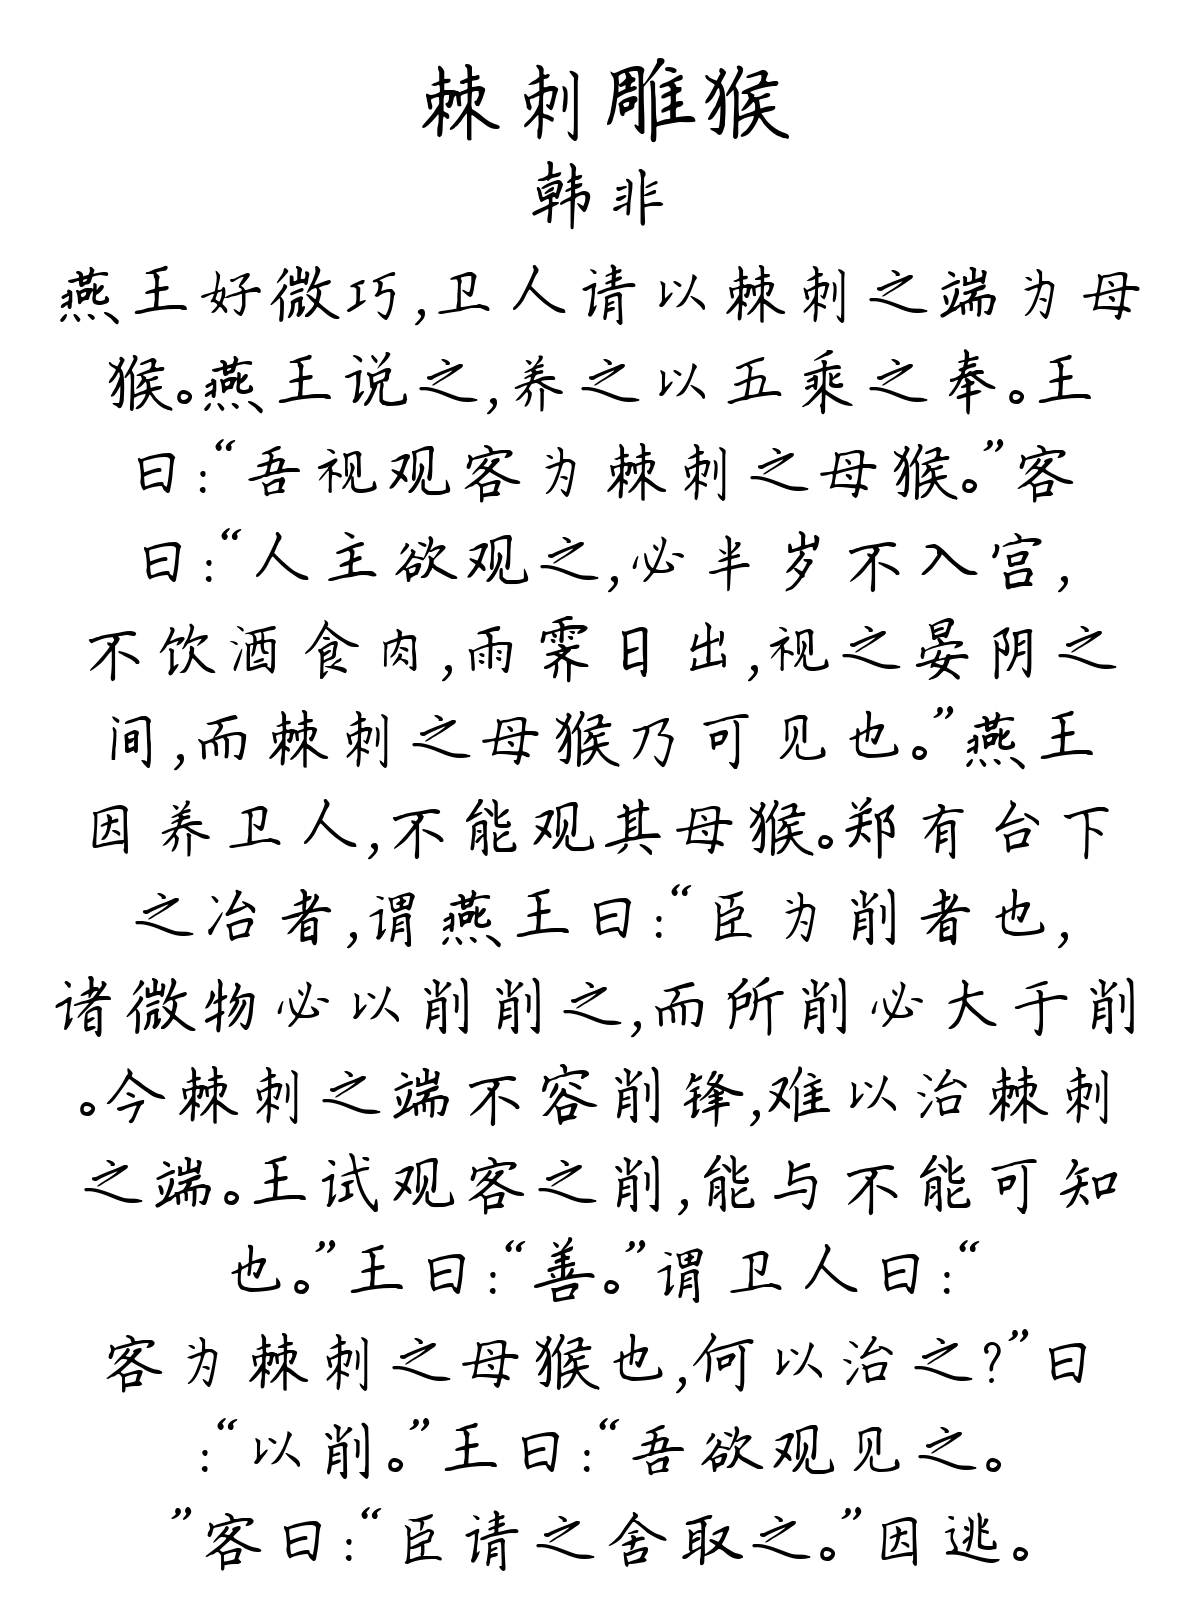 棘刺雕猴
韩非
燕王好微巧,卫人请以棘刺之端为母
猴。燕王说之,养之以五乘之奉。王
曰:“吾视观客为棘刺之母猴。”客
曰:“人主欲观之,必半岁不入宫,
不饮酒食肉,雨霁日出,视之晏阴之
间,而棘刺之母猴乃可见也。”燕王
因养卫人,不能观其母猴。郑有台下
之冶者,谓燕王曰:“臣为削者也,
诸微物必以削削之,而所削必大于削
。今棘刺之端不容削锋,难以治棘刺
之端。王试观客之削,能与不能可知
也。”王曰:“善。”谓卫人曰:“
客为棘刺之母猴也,何以治之?”曰
:“以削。”王曰:“吾欲观见之。
”客曰:“臣请之舍取之。”因逃。